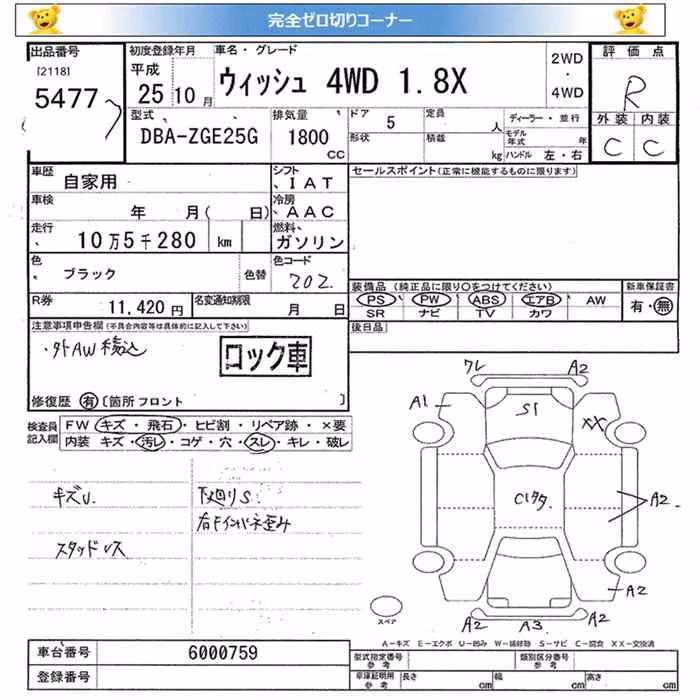 完全ゼロ切りコーナー
出品番号 初度登録年月 車名・グレード 評価点
[2118] 平成 ウィッシュ 4WD 1.8X 2WD・4WD R
5477 25 10月
型式 排気量 ドア 5 定員 人 ディーラー・並行 外装 内装
DBA-ZGE25G 1800 CC 形状 積載 kg モデル年式 年 C C
ハンドル 左・右
車歴 自家用 シフト IAT セールスポイント(正常に機能するものに限ります)
車検 年 月( 日) 冷房 AAC
走行 10万5千280 km 燃料 ガソリン
色 ブラック 色替 色コード 202 装備品 (純正品に限り○をつけてください) 新車保証書
PS PW ABS エアB AW 有・無
R券 11,420円 名変通知期限 月 日 SR ナビ TV カワ
注意事項申告欄(不具合内容等は具体的に記入して下さい) 後日品
・外AW積込 ロック車
修復歴 有 〔箇所 フロント 〕
検査員記入欄 FW キズ・飛石・ヒビ割・リペア跡・×要
内装 キズ・汚レ・コゲ・穴・スレ・キレ・破レ
キズU. 下廻りS.
スタッドレス
ワレ A2
A1 S1 XX
C1クタ. A2.
A2
A2 A3 A2
スペア
A-キズ E-エクボ U-凹み W-補修跡 S-サビ C-腐食 XX-交換済
車台番号 6000759 型式指定番号 参考 類別区分番号 参考
登録番号 車庫証明用 参考 長さ cm 幅 cm 高さ cm